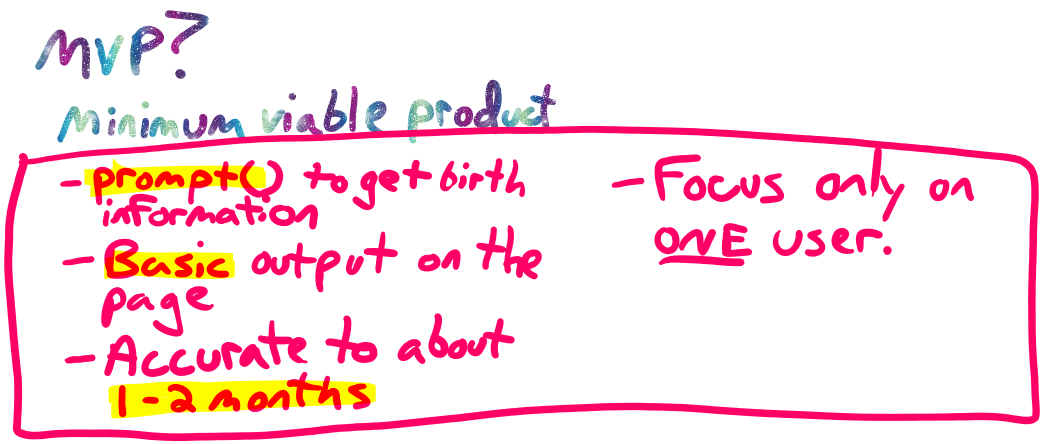 MVP?
minimum viable product
- prompt() to get birth
information
- Basic output on the
page
- Accurate to about
1-2 months
- Focus only on
ONE user.